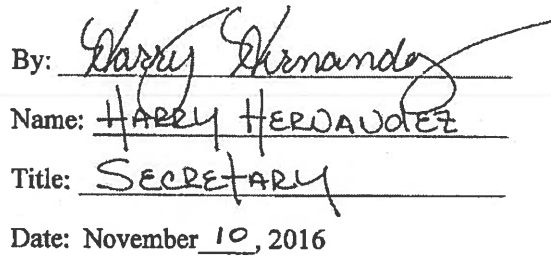 By: Harry Hernandez
Name: HARRY HERNANDEZ
Title: SECRETARY
Date: November 10, 2016